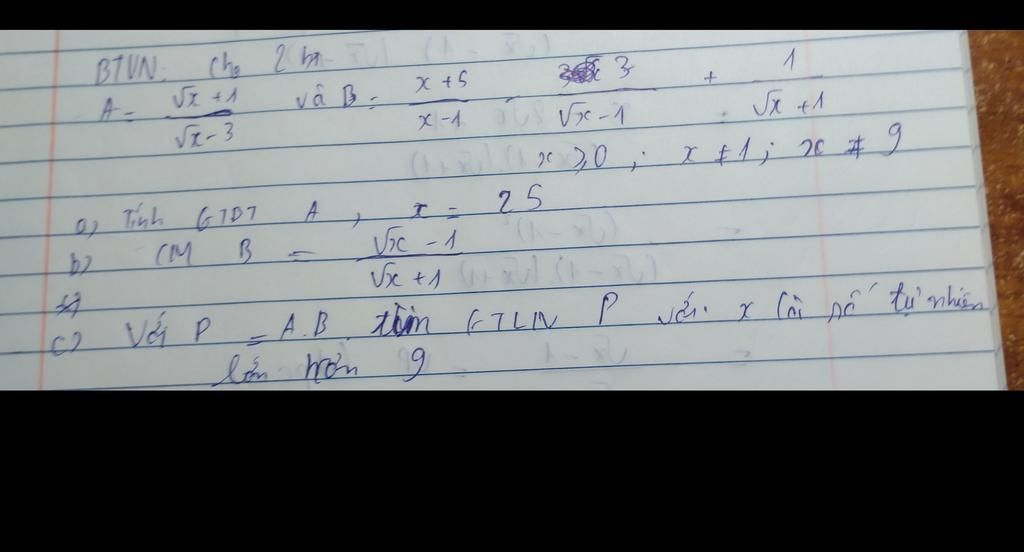 BTVN: Cho 2 bt
A = \frac{√x + 1}{√x - 3} và B = \frac{x + 5}{x - 1} - \frac{3}{√x - 1} + \frac{1}{√x + 1}
x ⩾ 0 ; x ≠ 1 ; x ≠ 9
a) Tính GTBT A , x = 25
b) CM B = \frac{√x - 1}{√x + 1}
c) Với P = A.B. tìm GTLN P với x là số tự nhiên
lớn hơn 9